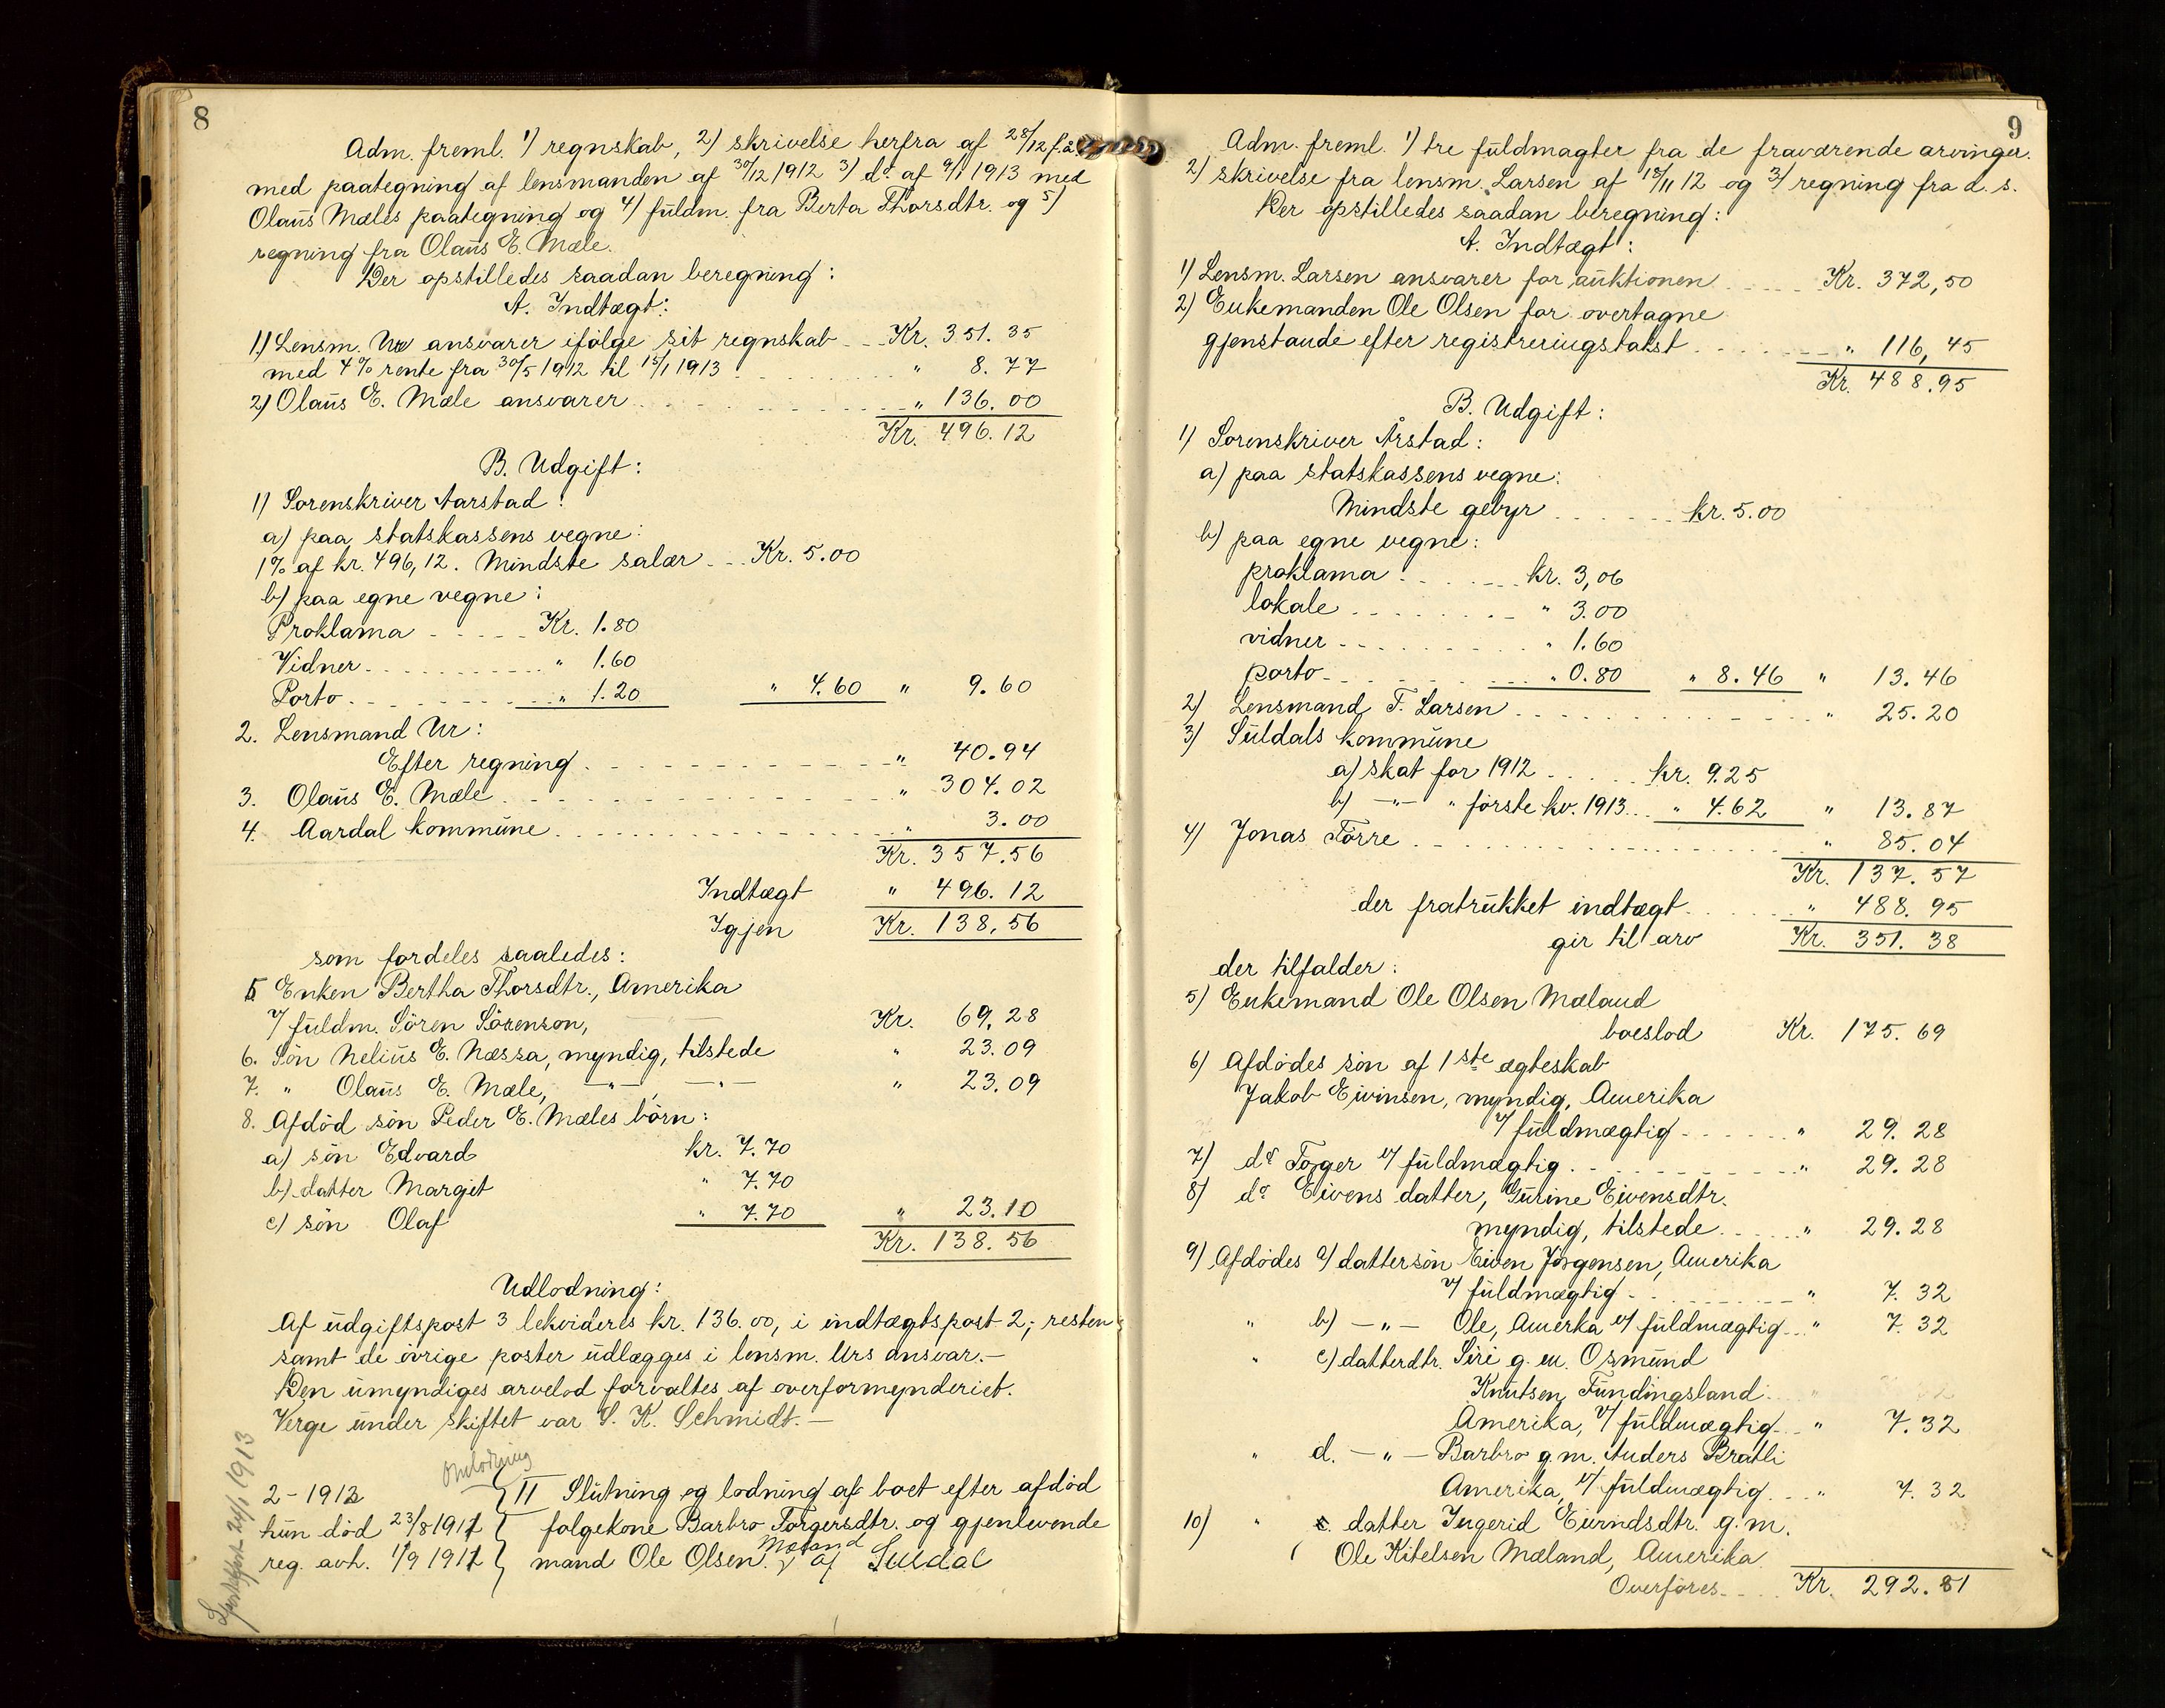 8
Adm. freml. 1) regnskab, 2) skrivelse herfra af 28/12 f.a.
med paategning af lensmanden af 30/12 1912 3) do af 9/1 1913 med
Olaus Mæles paategning og 4) fuldm. fra Berta Thorsdtr. og 5)
regning fra Olaus E. Mæle.
Der opstilledes saadan beregning:
A. Indtægt:
1) Lensm. Ur ansvarer ifølge sit regnskab Kr. 351.35
med 4% rente fra 30/5 1912 til 15/1 1913 " 8.77
2) Olaus E. Mæle ansvarer " 136.00
Kr. 496.12
B. Udgift:
1) Sorenskriver Aarstad:
a) paa statskassens vegne:
1% af kr. 496,12. Mindste salær Kr. 5.00
b) paa egne vegne:
Proklama Kr. 1.80
Vidner " 1.60
Porto " 1.20 " 4.60 " 9.60
2. Lensmand Ur:
Efter regning " 40.94
3. Olaus E. Mæle " 304.02
4. Aardal kommune " 3.00
Kr. 357.56
Indtægt " 496.12
Igjen Kr. 138,56
som fordeles saaledes:
5 Enken Bertha Thorsdtr., Amerika
v/ fuldm. Sören Sörenson, Kr. 69,28
6. Sön Nelius E. Næssa, myndig, tilstede " 23.09
7. " Olaus E. Mæle, -"- -"- " 23.09
8. Afdöd sön Peder E. Mæles börn:
a) sön Edvard kr. 7.70
b) datter Margit " 7.70
c) sön Olaf " 7.70 " 23.10
Kr. 138.56
Udlodning:
Af udgiftspost 3 lekvideres kr. 136.00, i indtægtspost 2; resten
samt de övrige poster udlægges i lensm. Urs ansvar.-
Den umyndiges arvelod forvaltes af overformynderiet.
Verge under skiftet var S. K. Schmidt.-
Omlodning
2-1912 II Slutning og lodning af boet efter afdöd
hun död 23/8 1911 folgekone Barbro Torgersdtr. og gjenlevende
reg. avh. 1/9 1911 mand Ole Olsen Mæland af Suldal
24/1 1913
9
Adm. freml. 1) tre fuldmagter fra de fraværende arvinger.
2) skrivelse fra lensm. Larsen af 18/11 12 og 3) regning fra d. s.
Der opstilledes saadan beregning:
A. Indtægt:
1) Lensm. Larsen ansvarer for auktionen Kr. 372,50
2) Enkemanden Ole Olsen for overtagne
gjenstande efter registreringstakst " 116,45
Kr. 488.95
B. Udgift:
1) Sorenskriver Årstad:
a) paa statskassens vegne:
Mindste gebyr kr. 5.00
b) paa egne vegne:
proklama kr. 3,06
lokale " 3.00
vidner " 1.60
porto " 0.80 " 8.46 " 13.46
2) Lensmand T. Larsen " 25.20
3) Suldals kommune
a) skat for 1912 kr. 9.25
b) -"- " förste kv. 1913 " 4.62 " 13.87
4) Jonas Törre " 85.04
Kr. 137.57
der fratrukket indtægt " 488.95
gir til arv Kr. 351.38
der tilfalder:
5) Enkemand Ole Olsen Mæland
boeslod Kr. 175.69
6) Afdödes sön af 1ste ægteskab
Jakob Eivinsen, myndig, Amerika
v/ fuldmægtig " 29.28
7) do Torger v/ fuldmægtig " 29.28
8) do Eivens datter, Gurine Eivensdtr.
myndig, tilstede " 29.28
9) Afdödes a) dattersön Eiven Jörgensen, Amerika
v/ fuldmægtig " 7.32
" b) -"- Ole, Amerka v/ fuldmægtig " 7.32
" c) datterdtr. Siri g. m. Osmund
Knutsen Fundingsland
Amerika, v/ fuldmægtig " 7.32
" d. -"- Barbro g.m. Anders Bratli
Amerika, v/ fuldmægtig " 7.32
10) " datter Ingerid Eivindsdtr. g.m.
Ole Kitelsen Mæland, Amerika
Overföres Kr. 292.81